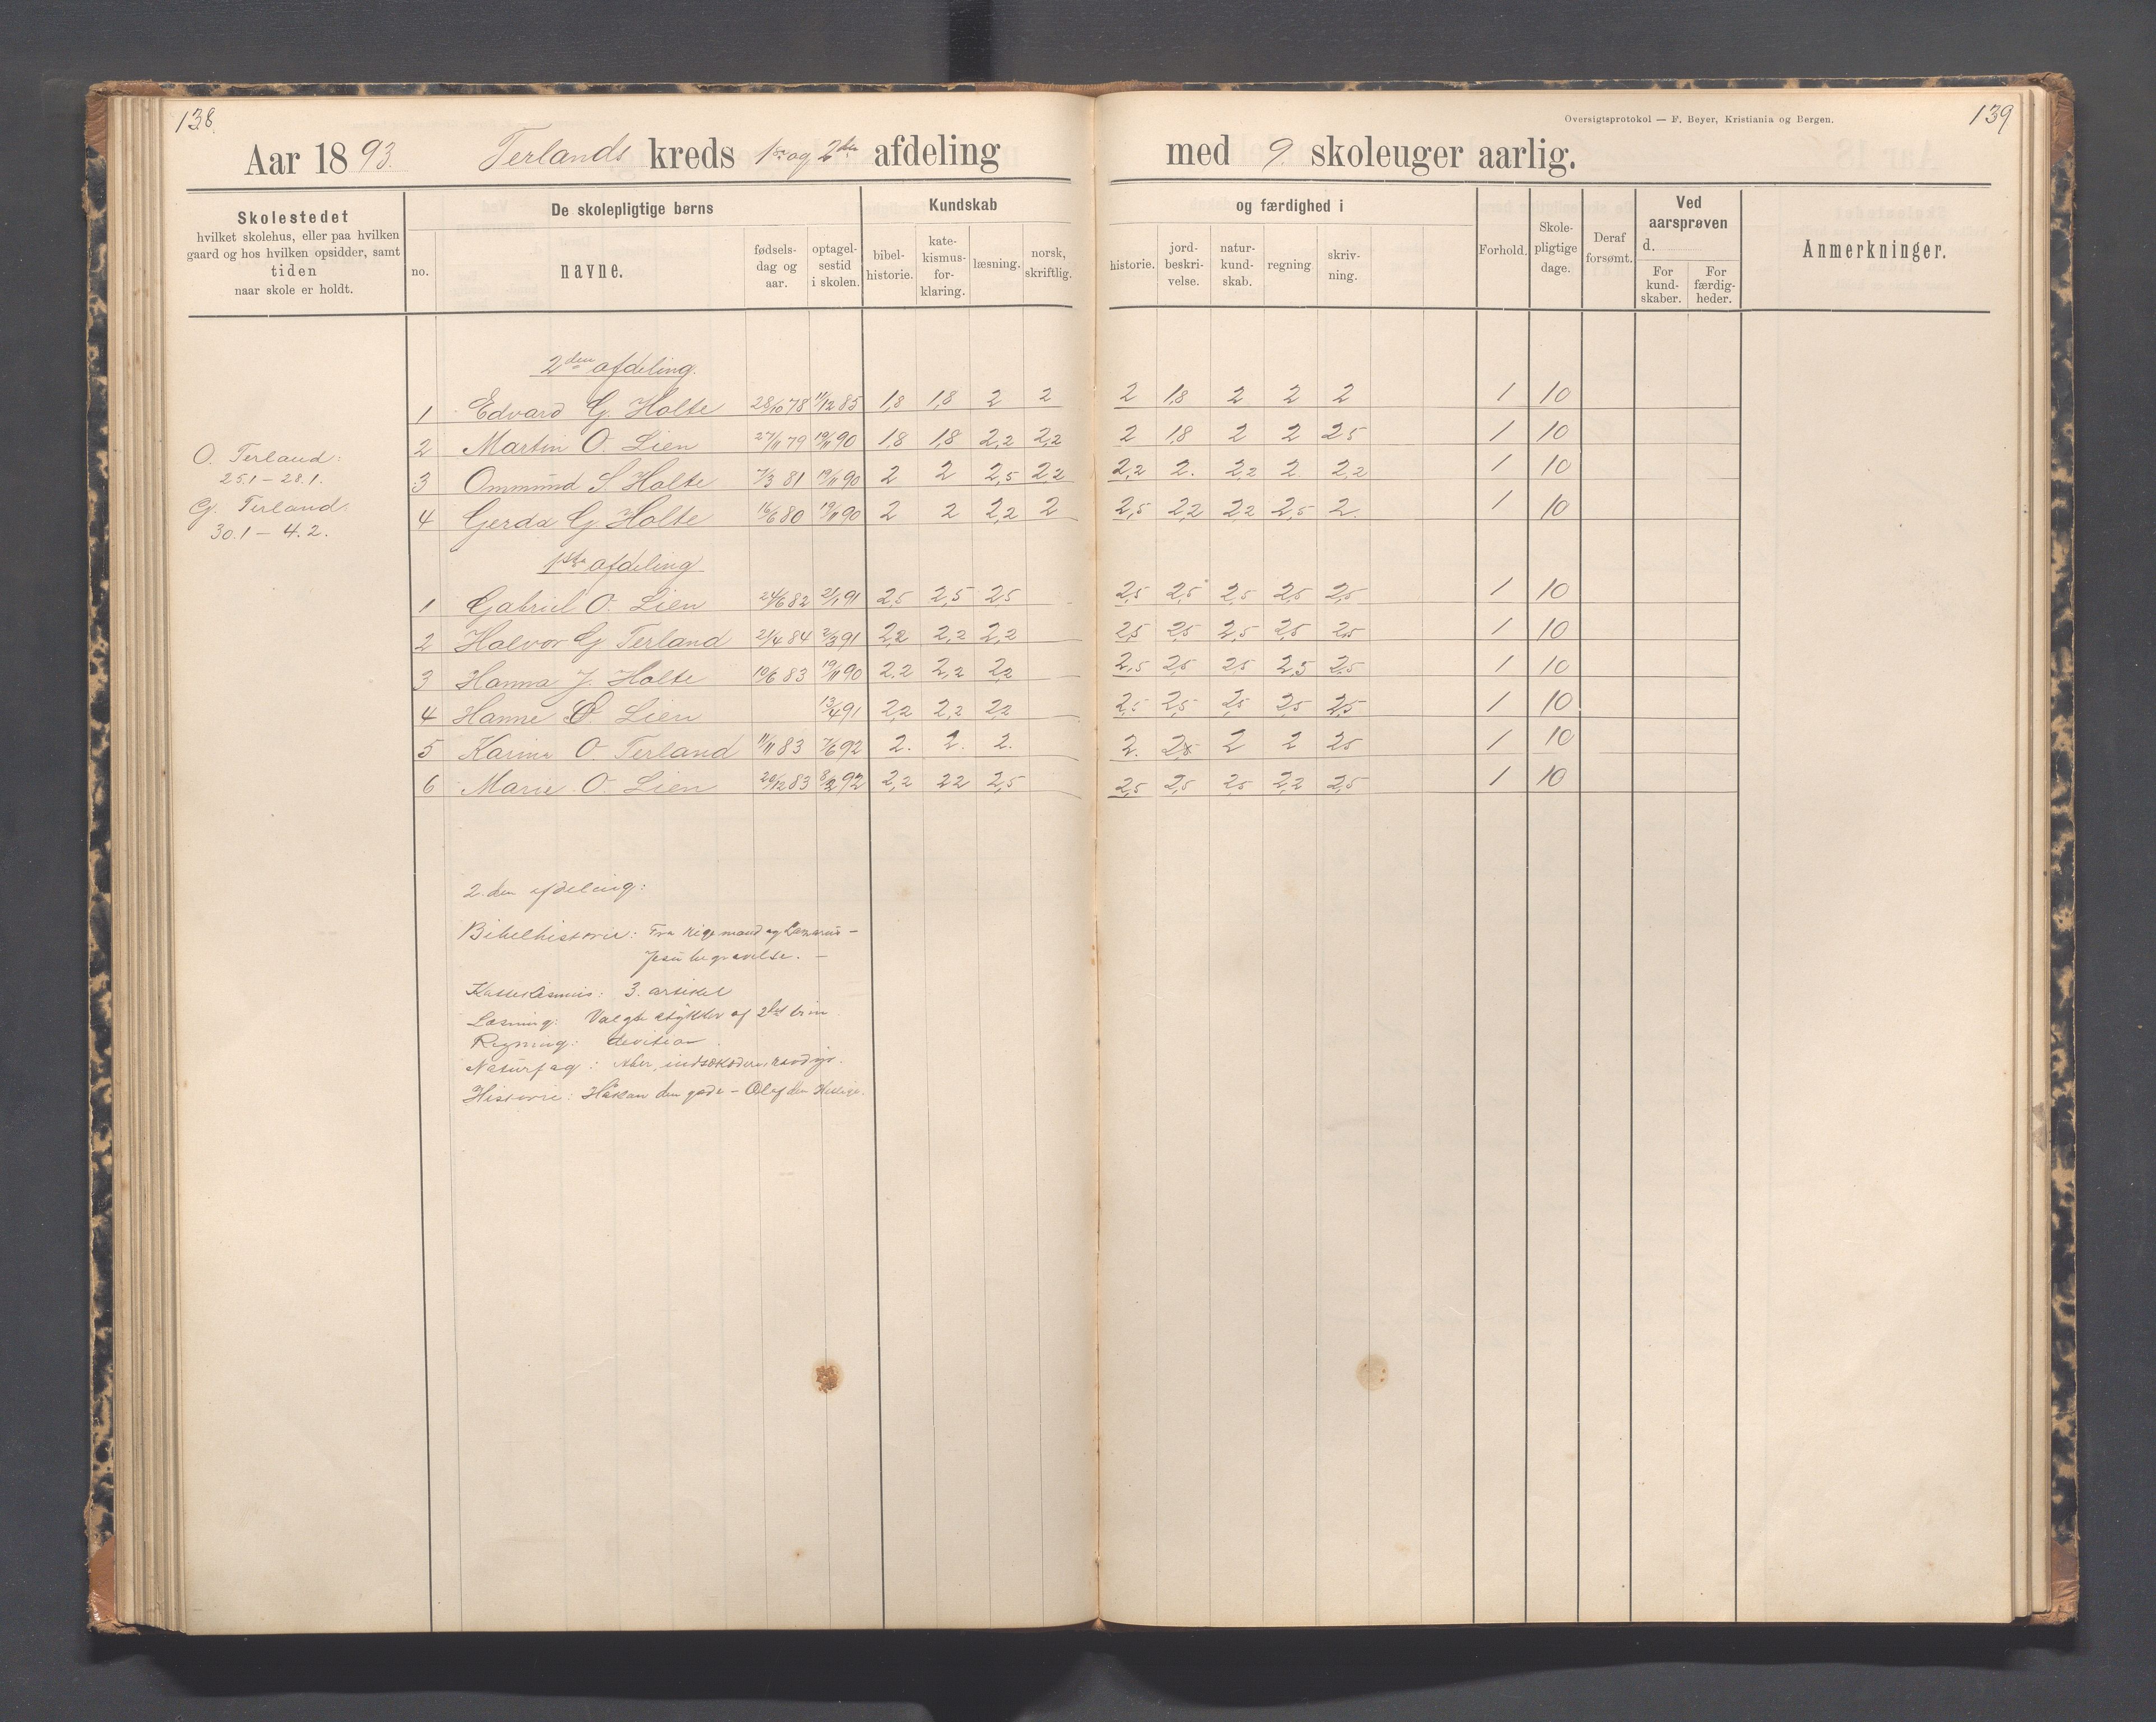 138
139
Oversigtsprotokol — F. Beyer, Kristiania og Bergen.
Aar 1893. Terlands kreds 1ste og 2den afdeling med 9 skoleuger aarlig.
Skolestedet hvilket skolehus, eller paa hvilken gaard og hos hvilken opsidder, samt tiden naar skole er holdt.
De skolepligtige børns
no. navne. fødsels-dag og aar. optagel-sestid i skolen.
Kundskab og færdighed i
bibel-historie. kate-kismus-for-klaring. læsning. norsk, skriftlig. historie. jord-beskri-velse. natur-kund-skab. regning skriv-ning.
Forhold. Skole-pligtige dage. Deraf forsømt. Ved aarsprøven d. For kund-skaber. For færdig-heder. Anmerkninger.
2den afdeling.
1 Edvard G. Holte 28/10 78 11/12 85 1,8 1,8 2 2 2 1,8 2 2 2 1 10
2 Martin O. Lien 27/11 79 19/11 90 1,8 1,8 2,2 2,2 2 1,8 2 2 2,5 1 10
3 Ommund S Holte 7/3 81 19/11 90 2 2 2,5 2,2 2,2 2. 2,2 2. 2,2 1 10
4 Gerda G Holte 16/6 80 19/11 90 2 2 2,2 2 2,5 2,2 2,2 2,5 2. 1 10
O. Terland:
25.1 – 28.1.
G. Terland.
30.1 – 4.2.
1ste afdeling
1 Gabriel O. Lien 24/6 82 2/1 91 2,5 2,5 2,5 2,5 2,5 2,5 2,5 2,5 1 10
2 Halvor G Terland 21/4 84 2/3 91 2,2 2,2 2,2 2,5 2,5 2,5 2,5 2,5 1 10
3 Hanna J. Holte 10/6 83 19/11 90 2.2 2,2 2,2 2,5 2,5 2,5 2,5 2,5 1 10
4 Hanne O. Lien 13/4 91 2,2 2,2 2,2 2,5 2,5 2,5 2,5 2,5 1 10
5 Karine O. Terland 11/11 83 7/6 92 2. 2. 2. 2. 2,5 2 2 2,5 1 10
6 Marie O. Lien 20/12 83 8/2 92 2,2 2,2 2,5 2,5 2,5 2,5 2,2 2,5 1 10
2.den afdeling:
Bibelhistorie: Fra rige mand og Lazarus –
Jesu begravelse. –
Kattekismus: 3. artikel
Læsning: Valgte stykker af 2det trin.
Regning: devision.
Naturfag: Aber, indsækædere, rovdyr.
Historie: Håkan den gode – Olaf den Hellige.